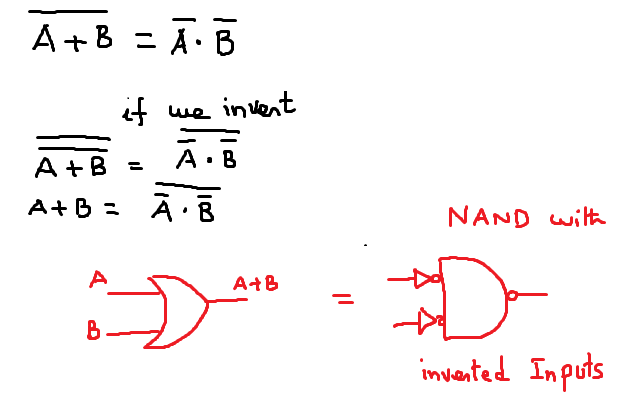 A̅ ̅+̅ ̅B̅ = A̅ · B̅
if we invert
A̿ ̿+̿ ̿B̿ = \overline{A̅ · B̅}
A+B = \overline{A̅ · B̅}
NAND with
A
A+B
=
B
inverted Inputs